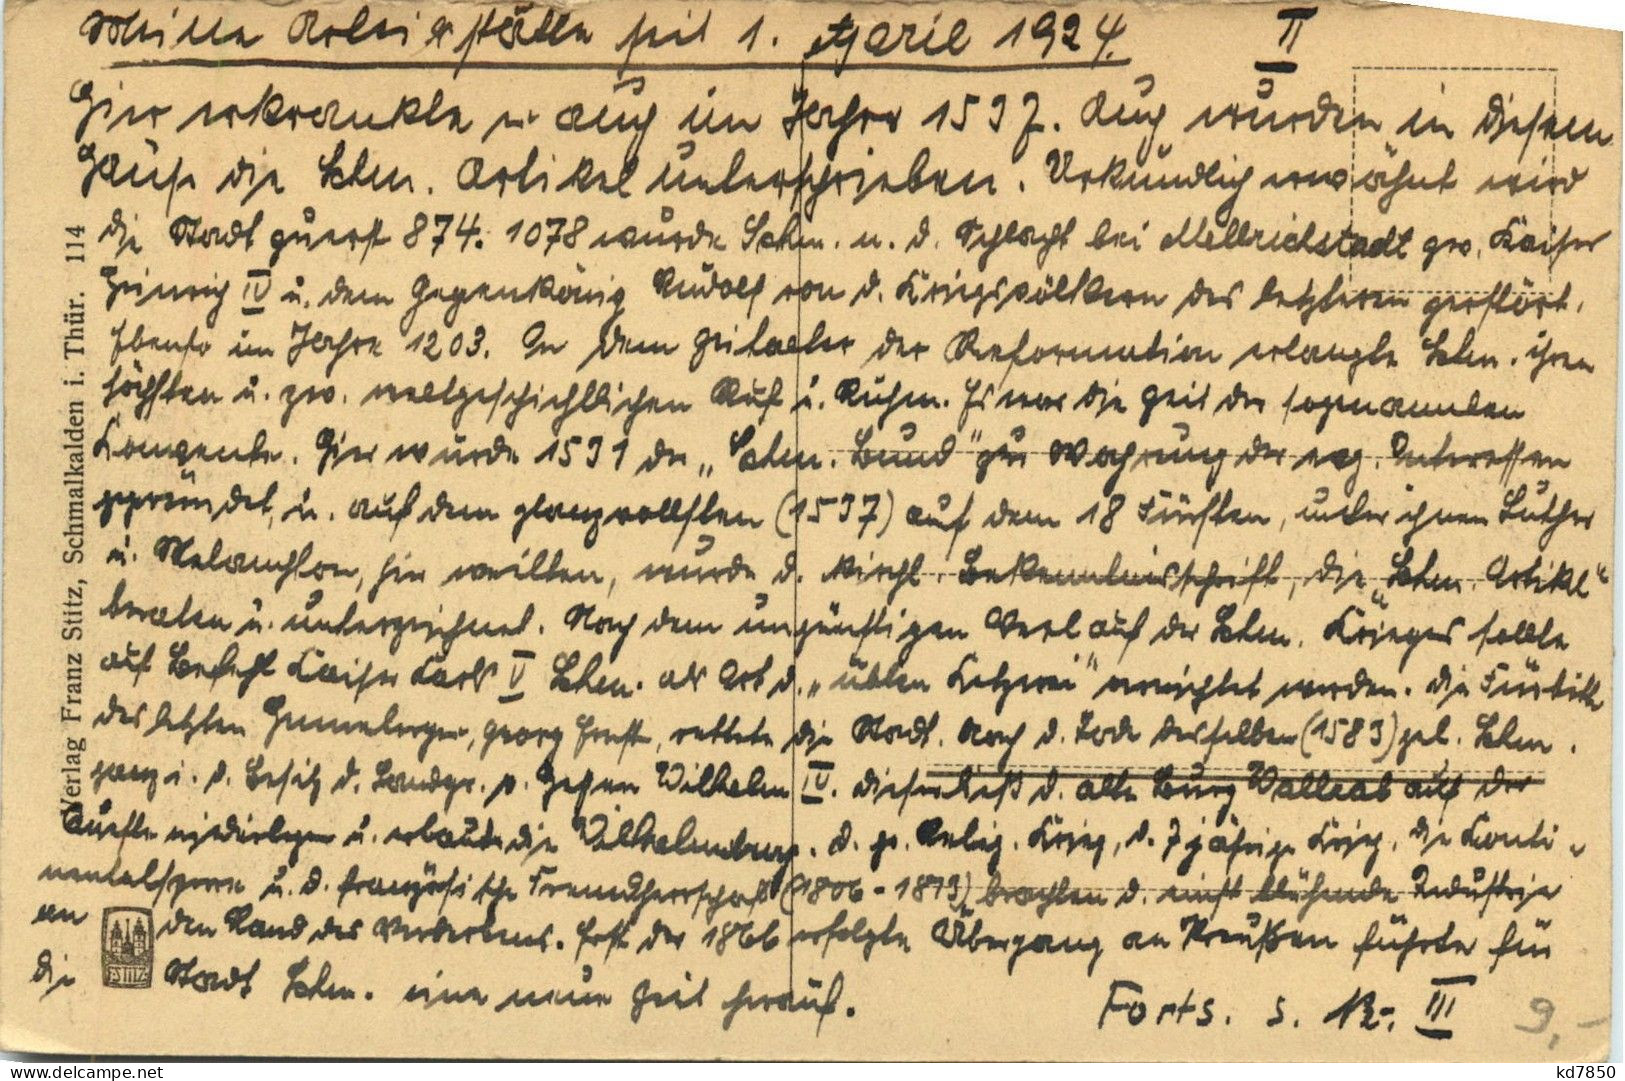 Meine Arbeitsstätte seit 1. April 1924. II
Hier erkrankte er auch im Jahre 1537. Auch wurden in diesem
Hause die Schm. Artikel unterschrieben. Urkundlich erwähnt wird
die Stadt zuerst 874. 1078 wurde Schm. n. d. Schlacht bei Mellrichstadt zw. Kaiser
Heinrich IV u. dem Gegenkönig Rudolf von d. Kriegsvölkern des letzteren zerstört,
Ebenso im Jahre 1203. In dem Zeitalter der Reformation erlangte Schm. ihren
höchsten u. zw. weltgeschichtlichen Ruf u. Ruhm. Es war die Zeit der sogenannten
Konvente. Hier wurde 1531 der „Schm. Bund" zur Wahrung der evg. Interessen
gegründet, u. auf dem glanzvollsten (1537) auf dem 18 Fürsten, unter ihnen Luther
u. Melanchton, hier weilten, wurde d. kirchl. Bekenntnisschrift, die „Schm. Artikel"
beraten u. unterzeichnet. Nach dem ungünstigen Verlauf der Schm. Krieges sollte
auf Befehl Kaiser Karls V Schm. als Ort d. „üblen Ketzerei" vernichtet werden. Die Fürbitte
des letzten Hennebergers, Georg Ernst, rettete die Stadt. Nach d. Tode desselben (1583) gel. Schm.
ganz i. d. Besitz d. Landgr. v. Hessen Wilhelm IV. Dieser ließ d. alte Burg Wallrab auf der
Queste niederlegen u. erbaute die Wilhelmsburg. D. 30j. Relig. Krieg, d. 7 jährige Krieg, die Konti-
nentalsperre u. d. französische Fremdherrschaft (1806-1813) brachten d. einst blühende Industrie
an den Rand des Verderbens. Erst der 1866 erfolgte Übergang an Preußen führte für
die Stadt Schm. eine neue Zeit herauf.
Forts. s. Nr. III
9,-
Verlag Franz Stitz, Schmalkalden i. Thür. 114
F. STITZ
kd7850